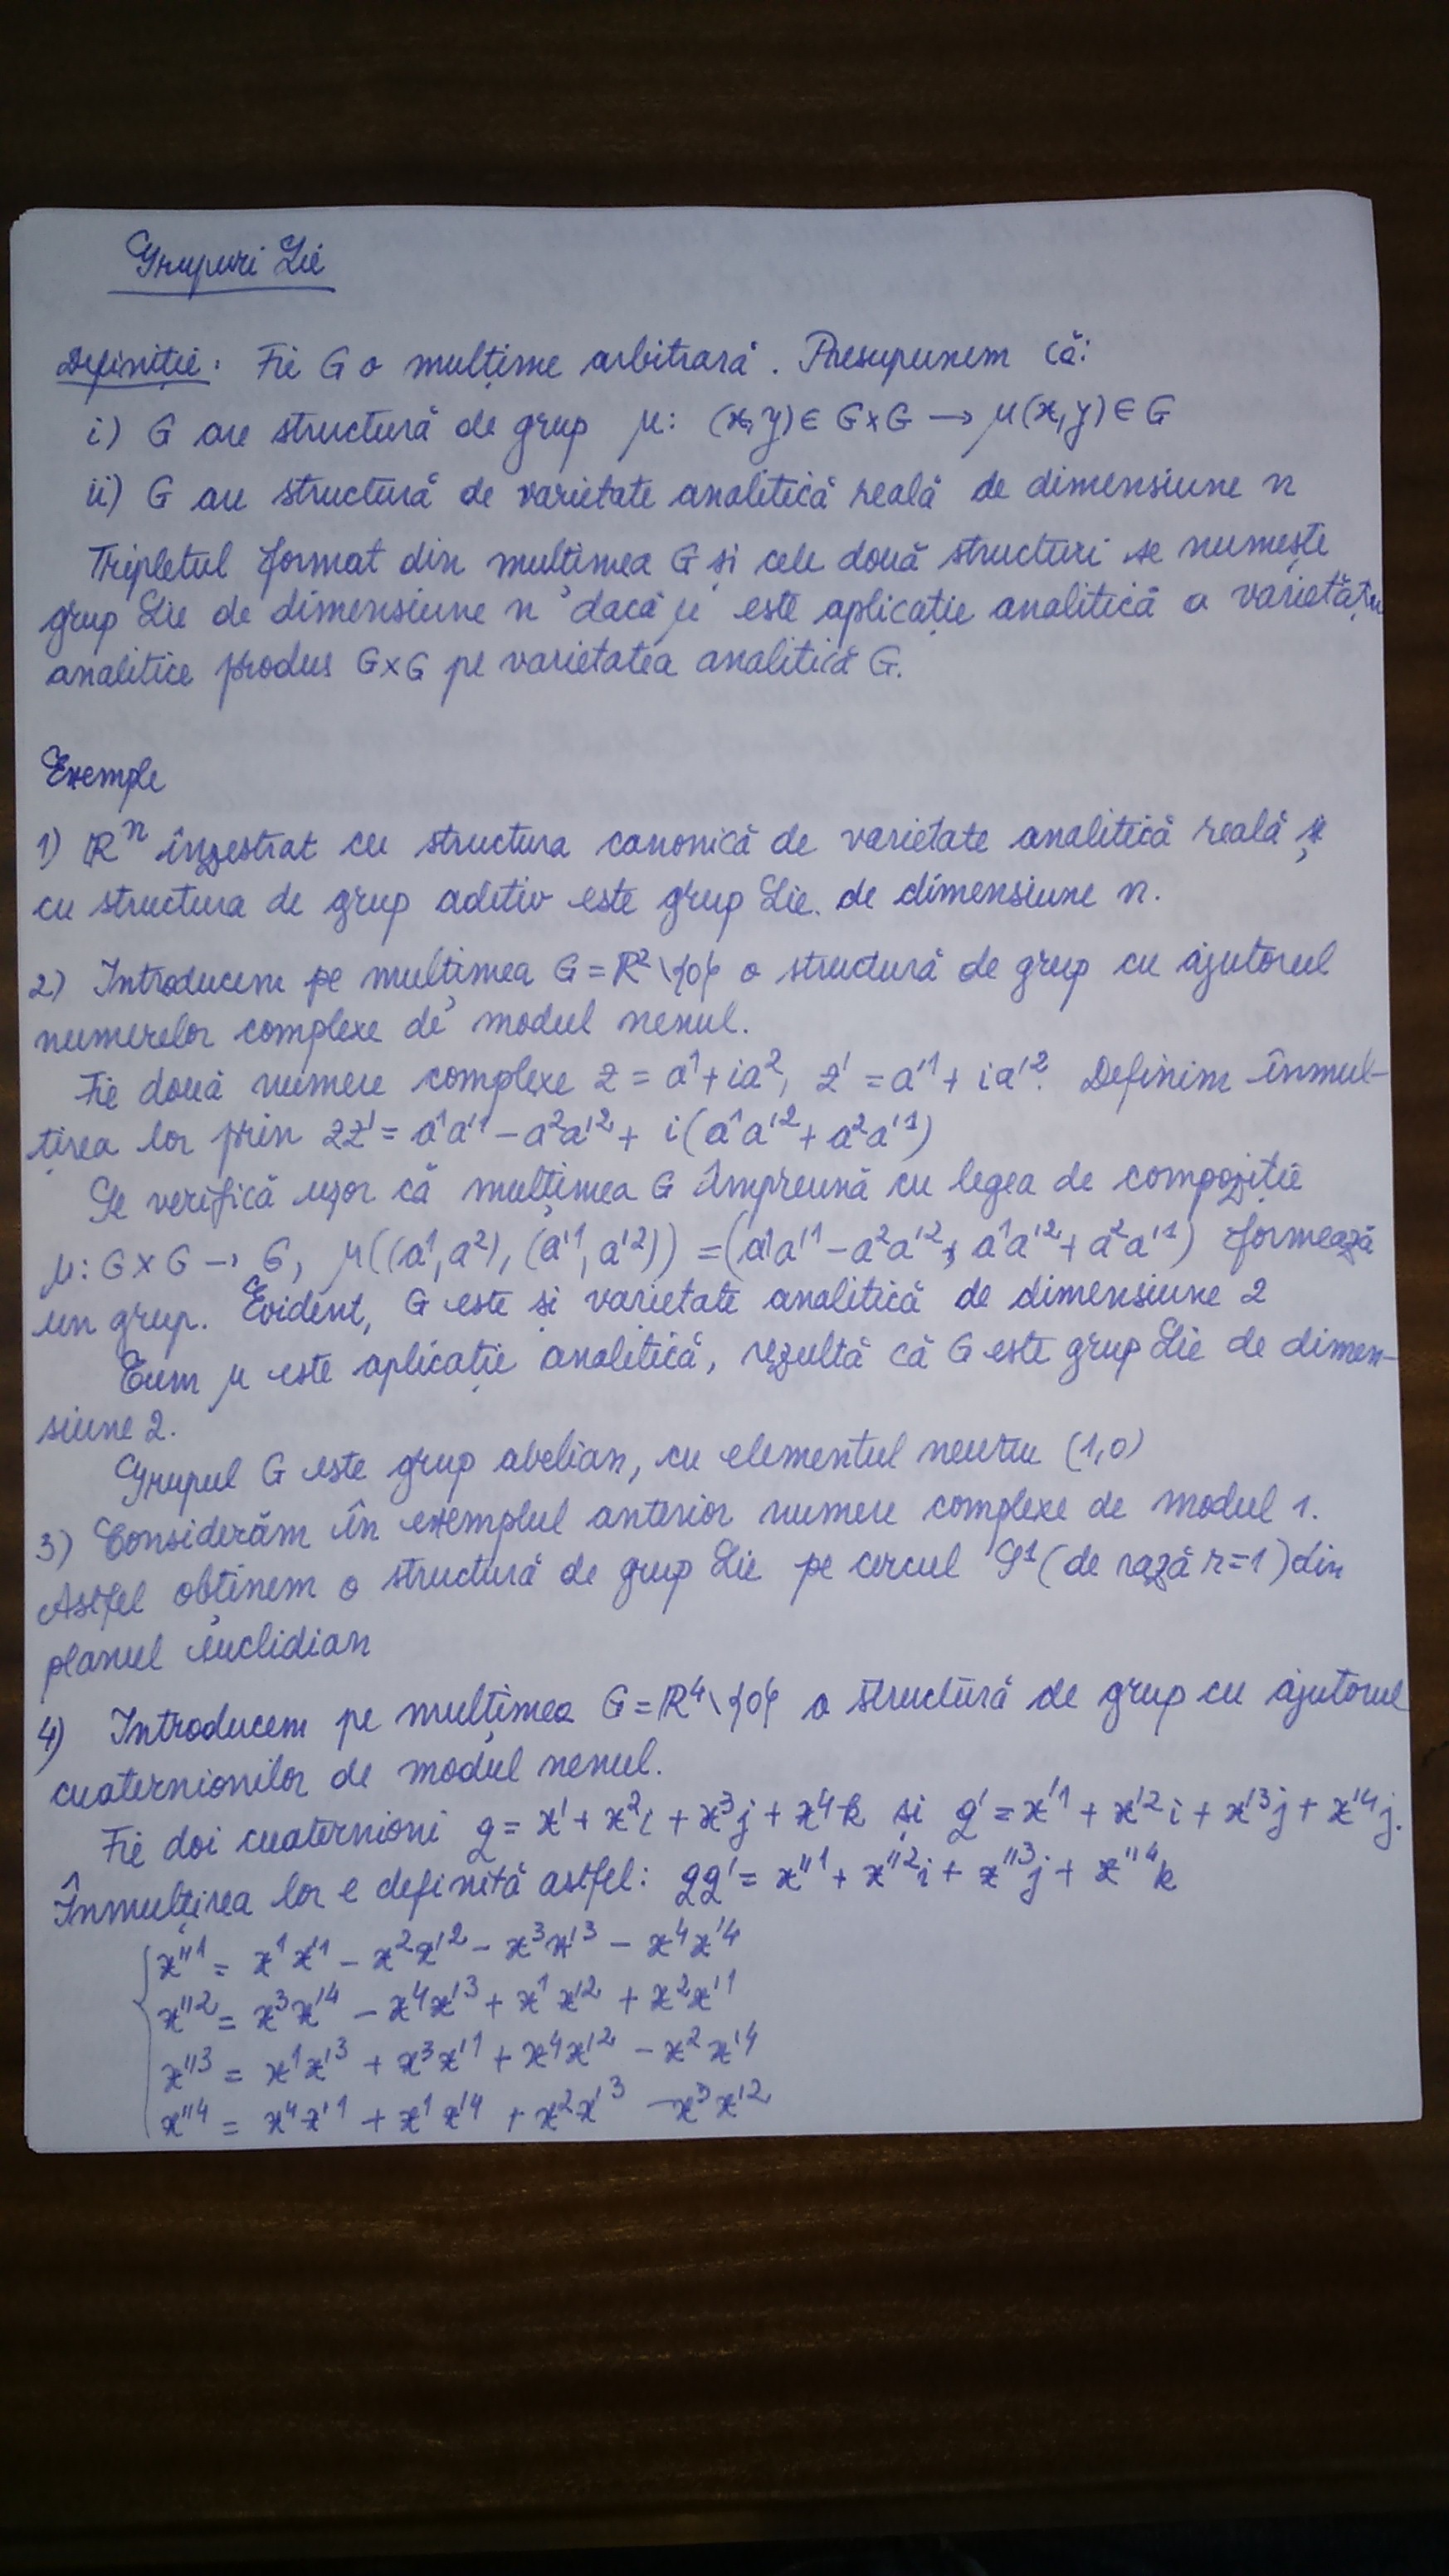 Grupuri Lie
Definiție: Fie G o mulțime arbitrară. Presupunem că:
i) G are structură de grup μ: (x,y)∈ G×G → μ(x,y)∈ G
ii) G are structură de varietate analitică reală de dimensiune n
Tripletul format din mulțimea G și cele două structuri se numește
grup Lie de dimensiune n dacă μ este aplicație analitică a varietății
analitice produs G×G pe varietatea analitică G.
Exemple
1) ℝⁿ înzestrat cu structura canonică de varietate analitică reală și
cu structura de grup aditiv este grup Lie. de dimensiune n.
2) Introducem pe mulțimea G = ℝ² \ {0} o structură de grup cu ajutorul
numerelor complexe de modul nenul.
Fie două numere complexe z = a¹ + ia², z' = a'¹ + ia'². Definim înmul-
țirea lor prin zz' = a¹a'¹ – a²a'² + i(a¹a'² + a²a'¹)
Se verifică ușor că mulțimea G împreună cu legea de compoziție
μ: G×G → G, μ((a¹,a²), (a'¹,a'²)) = (a¹a'¹ – a²a'², a¹a'² + a²a'¹) formează
un grup. Evident, G este și varietate analitică de dimensiune 2
Cum μ este aplicație analitică, rezultă că G este grup Lie de dimen-
siune 2.
Grupul G este grup abelian, cu elementul neutru (1,0)
3) Considerăm în exemplul anterior numere complexe de modul 1.
Astfel obținem o structură de grup Lie pe cercul S¹ (de rază r=1) din
planul euclidian
4) Introducem pe mulțimea G = ℝ⁴ \ {0} o structură de grup cu ajutorul
cuaternionilor de modul nenul.
Fie doi cuaternioni q = x¹ + x²i + x³j + x⁴k și q' = x'¹ + x'²i + x'³j + x'⁴j.
Înmulțirea lor e definită astfel: qq' = x''¹ + x''²i + x''³j + x''⁴k
x''¹ = x¹x'¹ – x²x'² – x³x'³ – x⁴x'⁴
x''² = x³x'⁴ – x⁴x'³ + x¹x'² + x²x'¹
x''³ = x¹x'³ + x³x'¹ + x⁴x'² – x²x'⁴
x''⁴ = x⁴x'¹ + x¹x'⁴ + x²x'³ – x³x'²